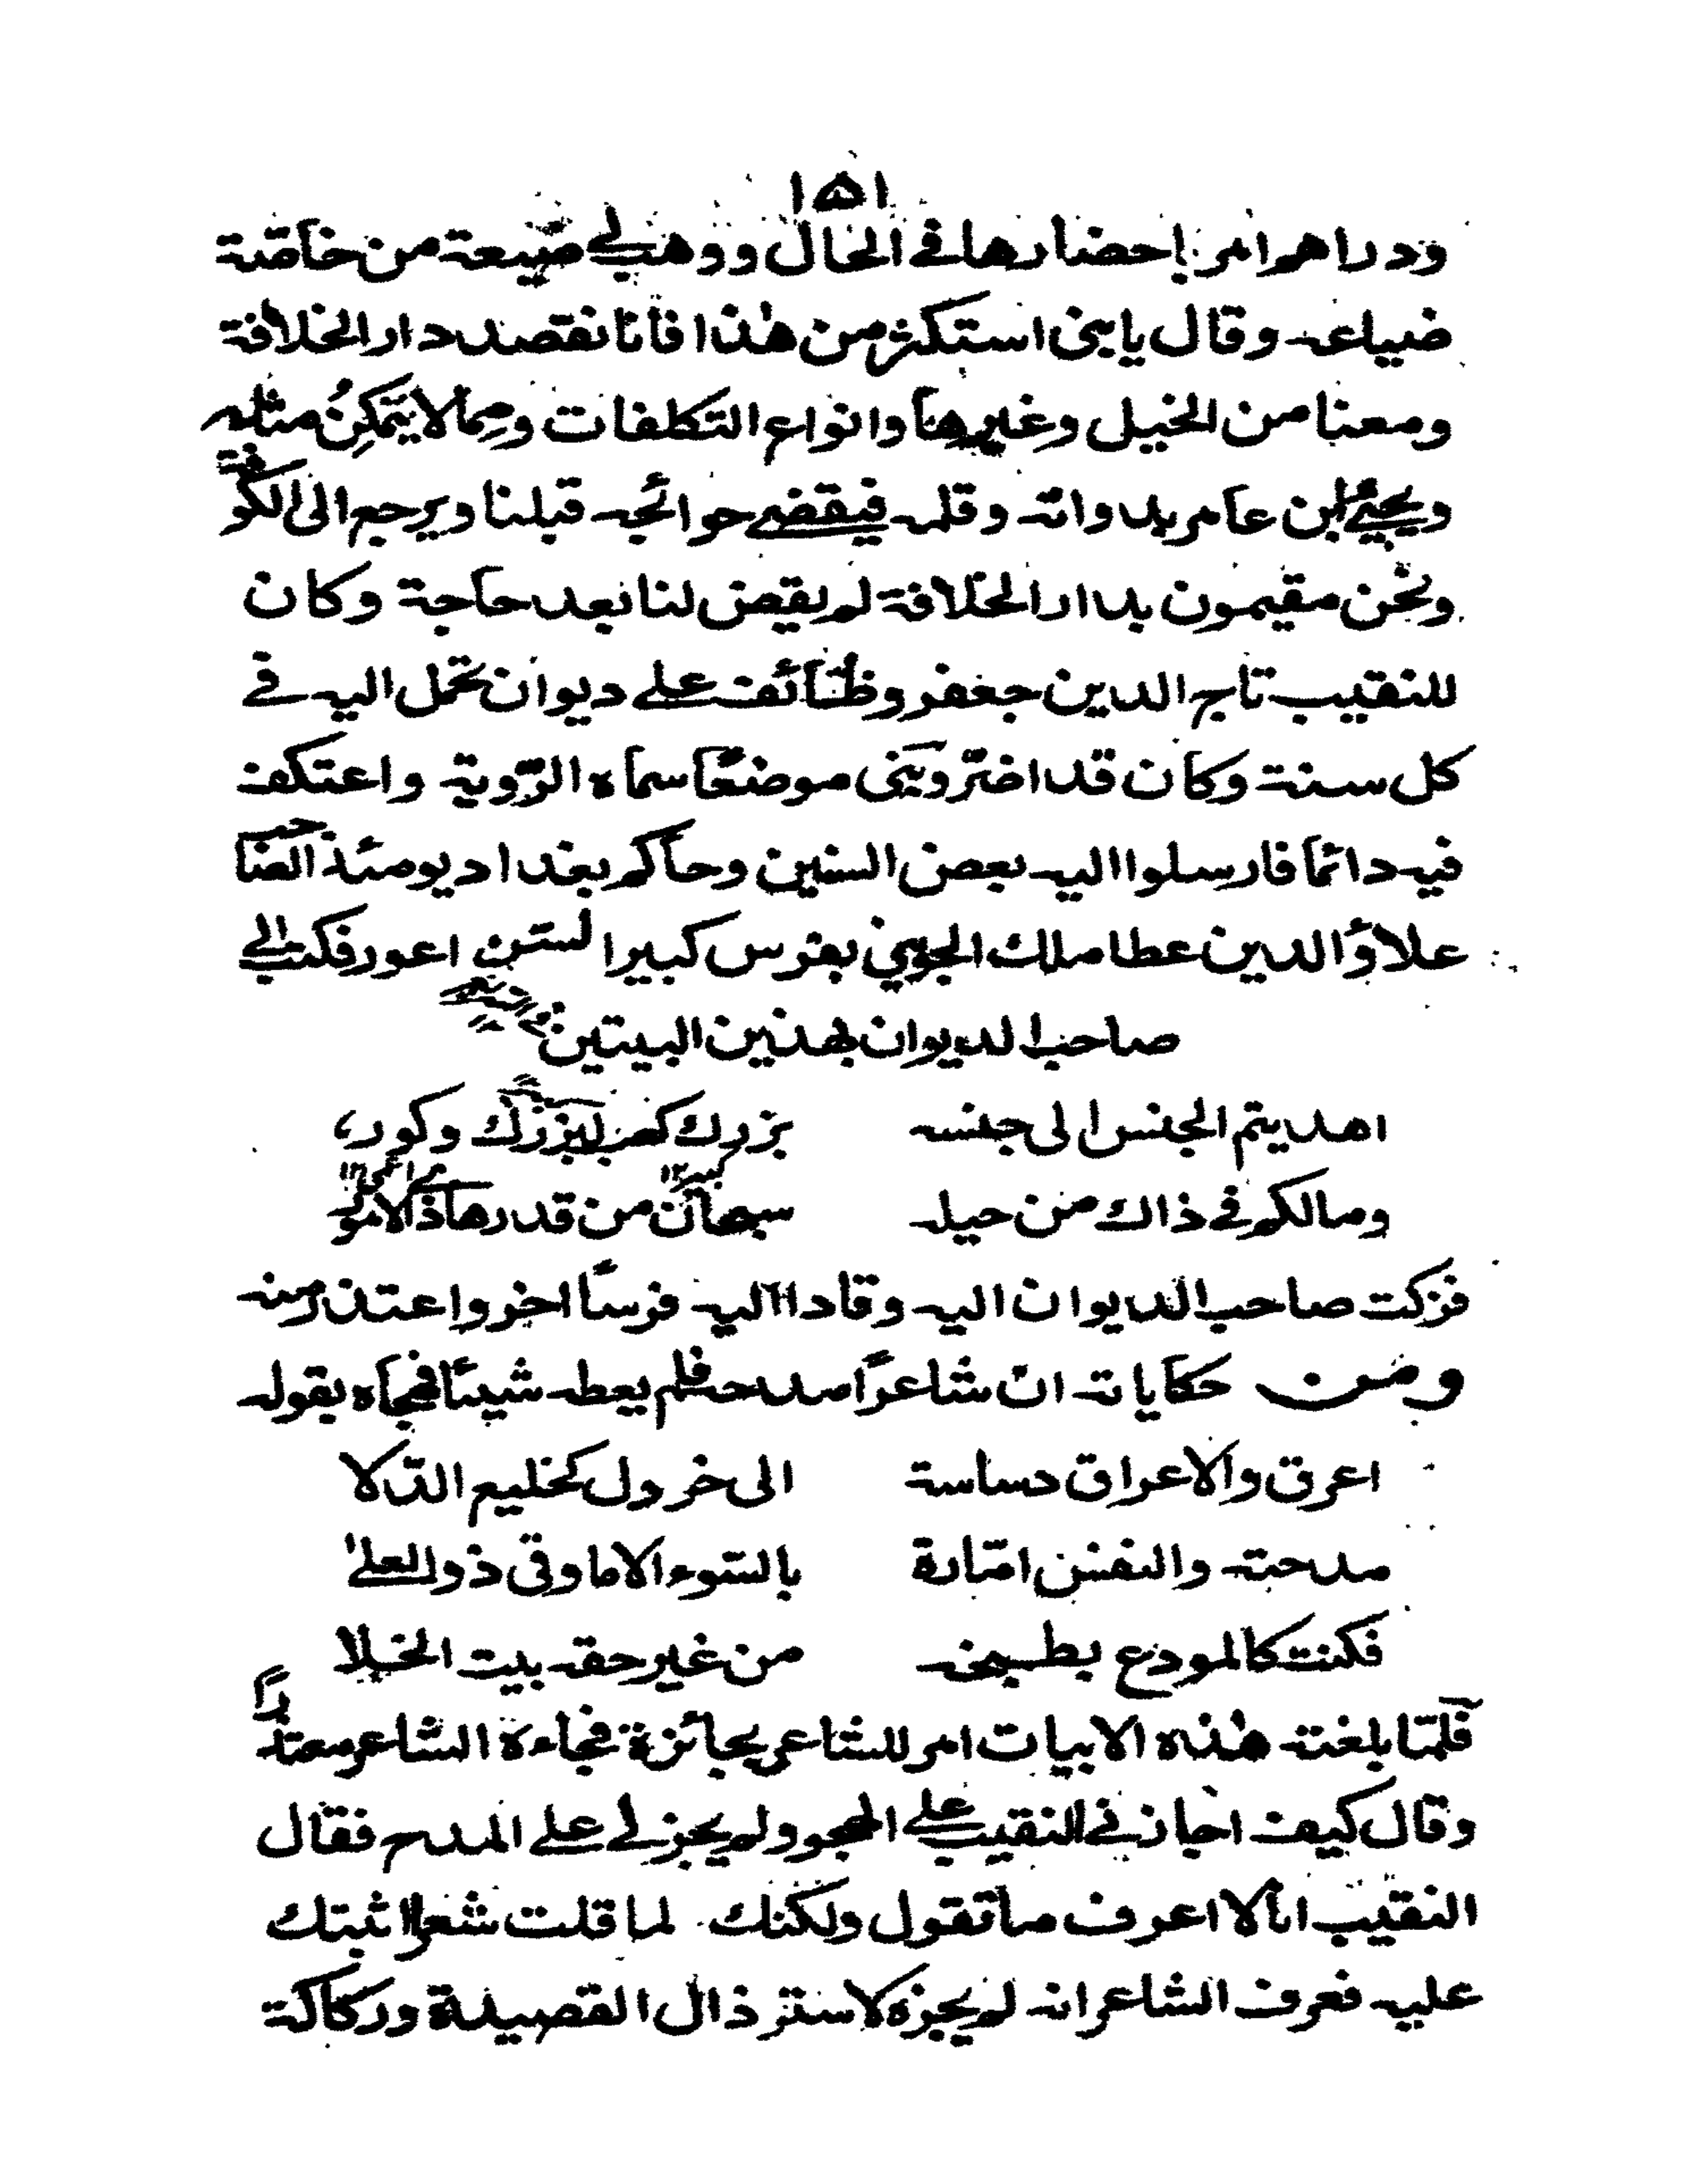 ١٥١
ودراهم امر باحضارها في الحال ووهب لي ضيعة من خاصة
ضياعه وقال يا بنى استكثر من هذا فانا نقصد دار الخلافة
ومعنا من الخيل وغيرها وانواع التكلفات ومما لا يتمكن مثله
ويجيئ ابن عامر بدواته وقلمه فيقضي حوائجه قبلنا ويرجع الى الكوفة
ونحن مقيمون بدار الخلافة لم يقض لنا بعد حاجة وكان
للنقيب تاج الدين جعفر وظائف على ديوان تحمل اليه في
كل سنة وكان قد اضر وبنى موضعًا سماه الزوية واعتكف
فيه دائما فارسلوا اليه بعض السنين وحاكم بغداد يومئذ الصاحب
علاؤ الدين عطا ملك الجويني بفرس كبير السن اعور فكتب الى
صاحب الديوان بهذين البيتين
اهديتم الجنس الى جنسه بزرك كبزرك وكور
ومالكم في ذاك من حيلة سبحان من قدر هذا الامور
فركب صاحب الديوان اليه وقاد اليه فرسًا اخر واعتذر منه
ومن حكاياته ان شاعرًا مدحه فلم يعطه شيئا فهجاه بقوله
اعرق والاعراق دساسة الى خر ول كخليع الدلا
مدحته والنفس امّارة بالسّوء الا ما وقى ذو العلى
فكنت كالمودع بطيخة من غير حقه بيت الخلا
فلمّا بلغته هذه الابيات امر للشاعر بجائزة فجاءه الشاعر معتذرًا
وقال كيف اجازني النقيب على الهجو ولم يجز لي على المدح فقال
النقيب انا لا اعرف ما تقول ولكنك لما قلت شعرا اثبتك
عليه فعرف الشاعر انه لم يجزه لاسترذال القصيدة وركاكة